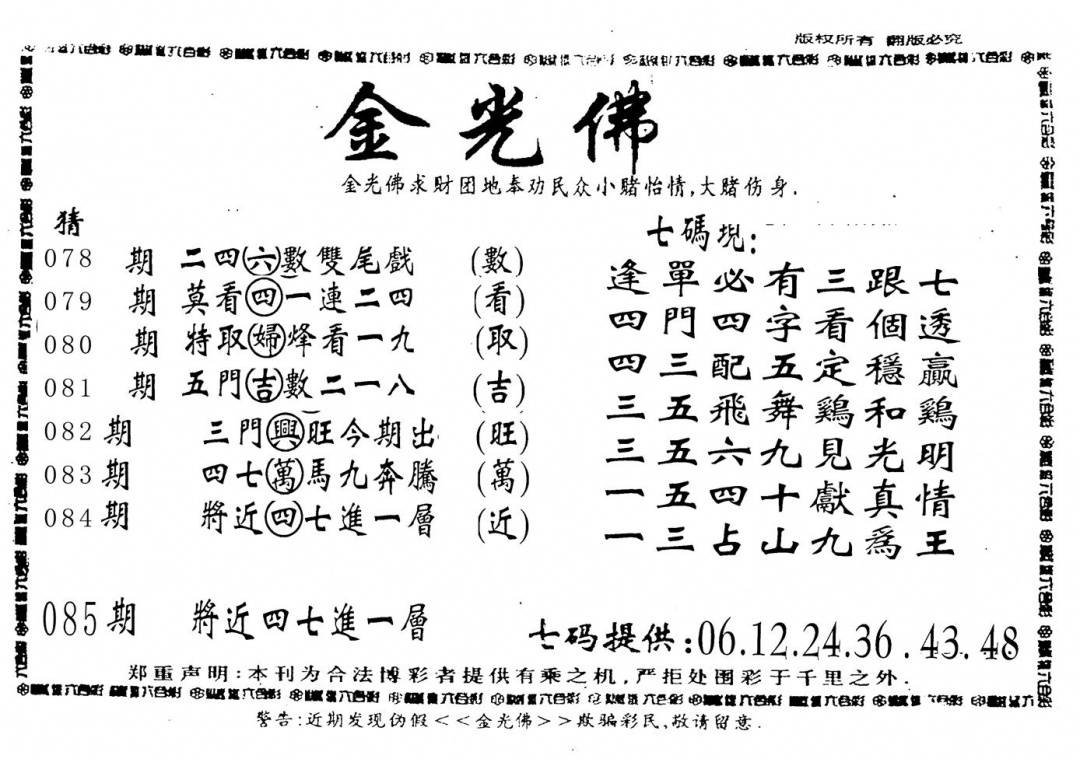 版权所有 翻版必究
金光佛
金光佛求财团地奉劝民众小赌怡情,大赌伤身.
猜
078 期 二四六數雙尾戲 (數)
079 期 莫看四一連二四 (看)
080 期 特取婦烽看一九 (取)
081 期 五門吉數二一八 (吉)
082 期 三門興旺今期出 (旺)
083 期 四七萬馬九奔騰 (萬)
084 期 將近四七進一層 (近)
085 期 將近四七進一層
七碼堄:
逢單必有三跟七
四門四字看個透
四三配五定穩贏
三五飛舞鷄和鷄
三五六九見光明
一五四十獻真情
一三占山九爲王
七码提供:06.12.24.36.43.48
郑重声明:本刊为合法博彩者提供有乘之机,严拒处围彩于千里之外.
警告:近期发现伪假<<金光佛>>欺骗彩民,敬请留意.